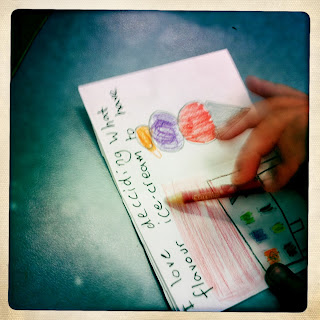 I love deccidi(2)g What
flavour ice-cream to have